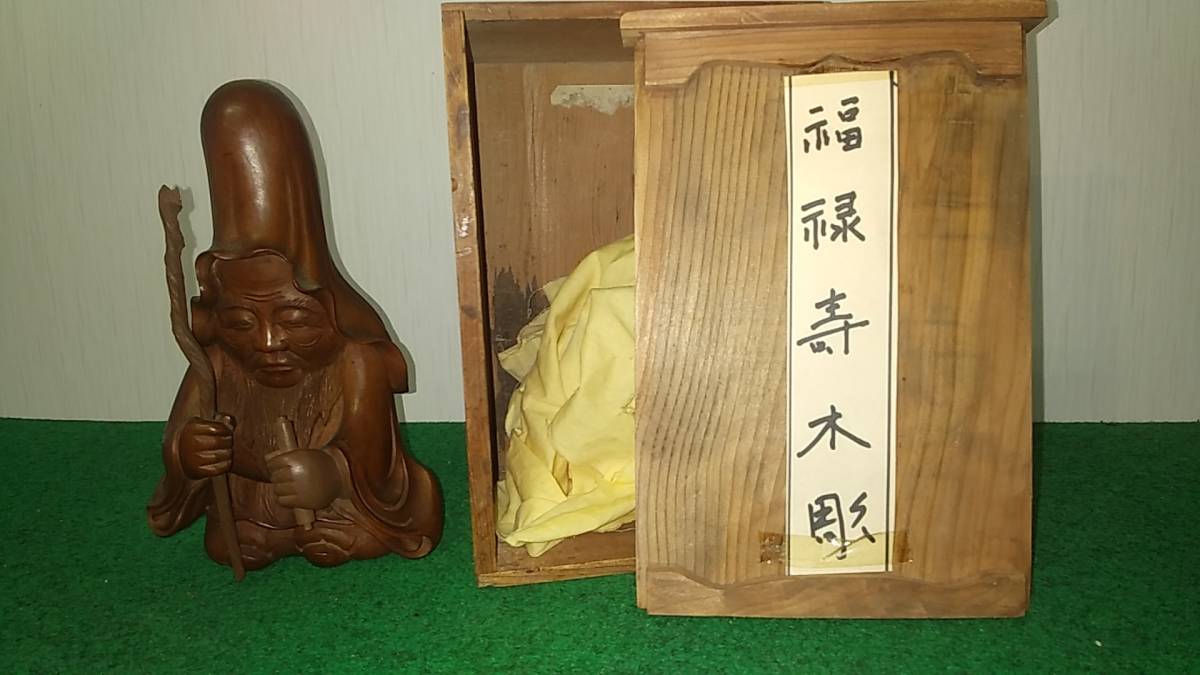 福禄壽木彫